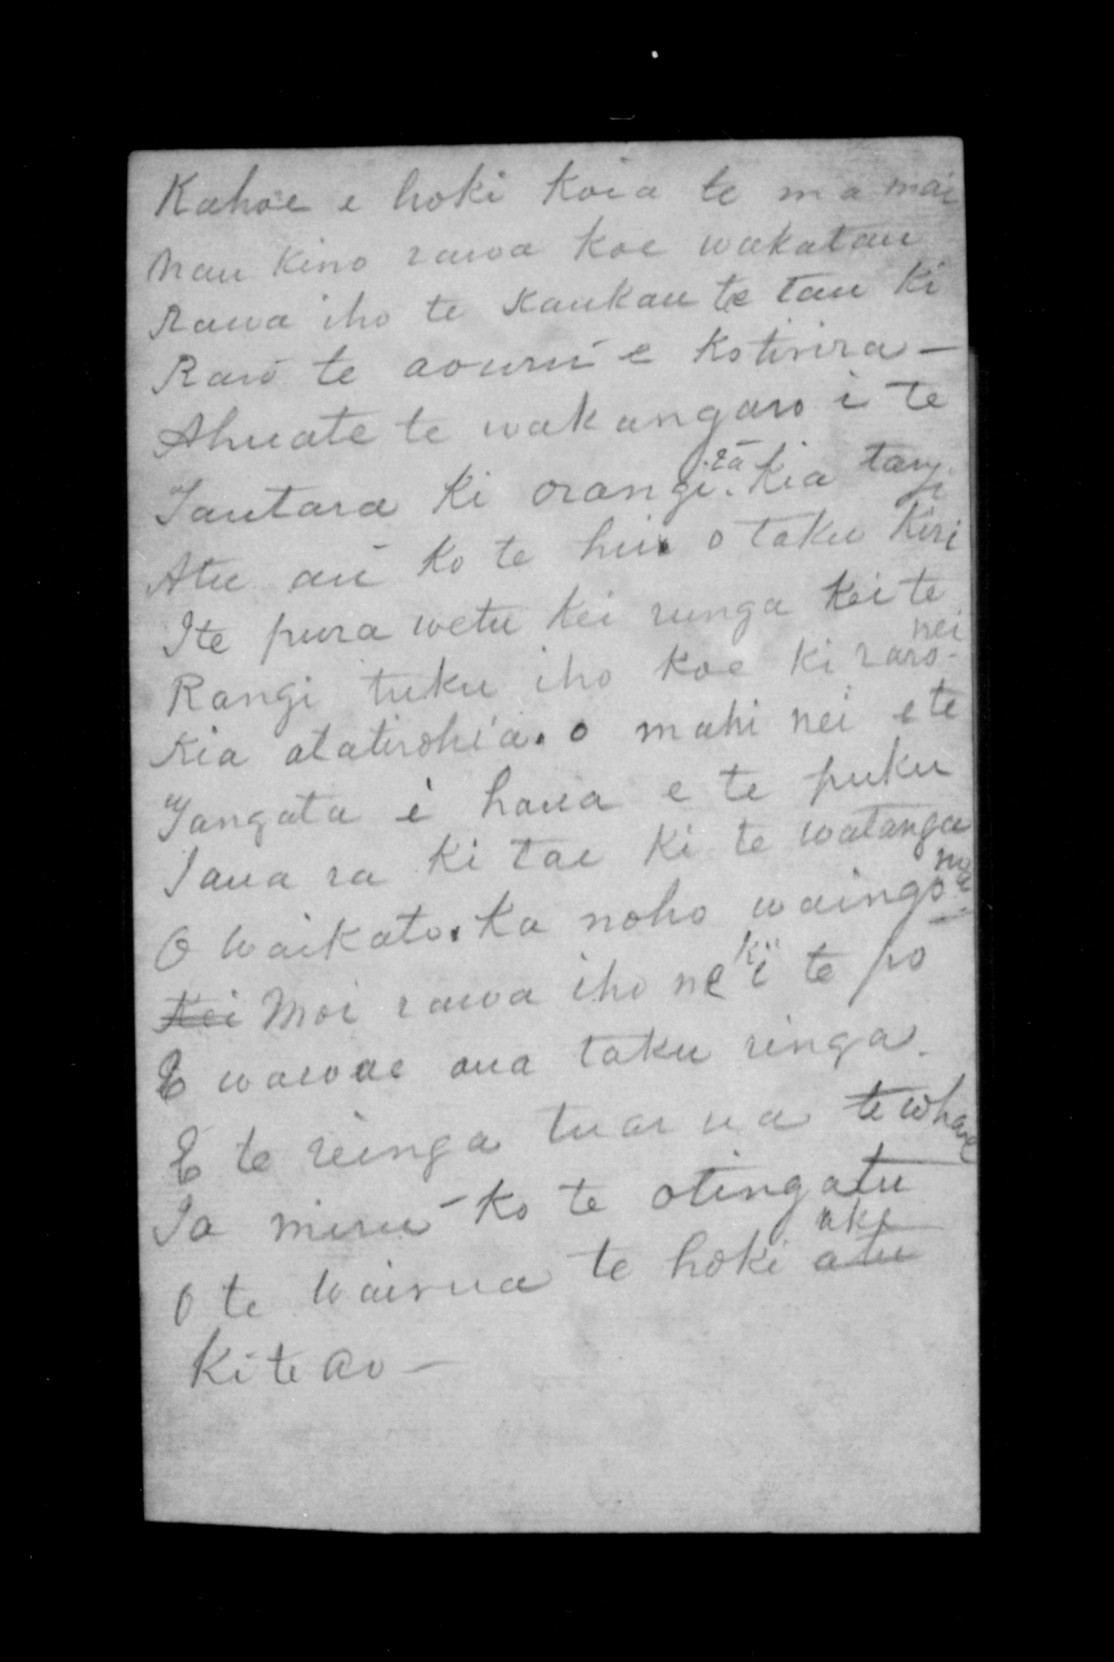 Kahoe e hoki koia te ma mai
Nau kino rawa koe wakatau
Rawa iho te kaukau te tau ki
Raro te aouru e kotirira —
Ahuate te wakangaro i te
Tautara ki orangi. ra kia tangi
Atu au ko te hui o taku kiri
Ite pura wetu kei runga kei te
Rangi tuku iho koe ki raro nei -
Kia atatirohia. o mahi nei e te
Tangata i haua e te puku
Taua ra ki tae ki te watanga
O Waikato. Ka noho waingo ma
Kei Moi rawa iho ne ki i te po
E wawae aua taku ringa.
E te reinga tuarua te whare
Ta miru - ko te otingatu
O te Wairua te hoki atu ake
Ki te ao —